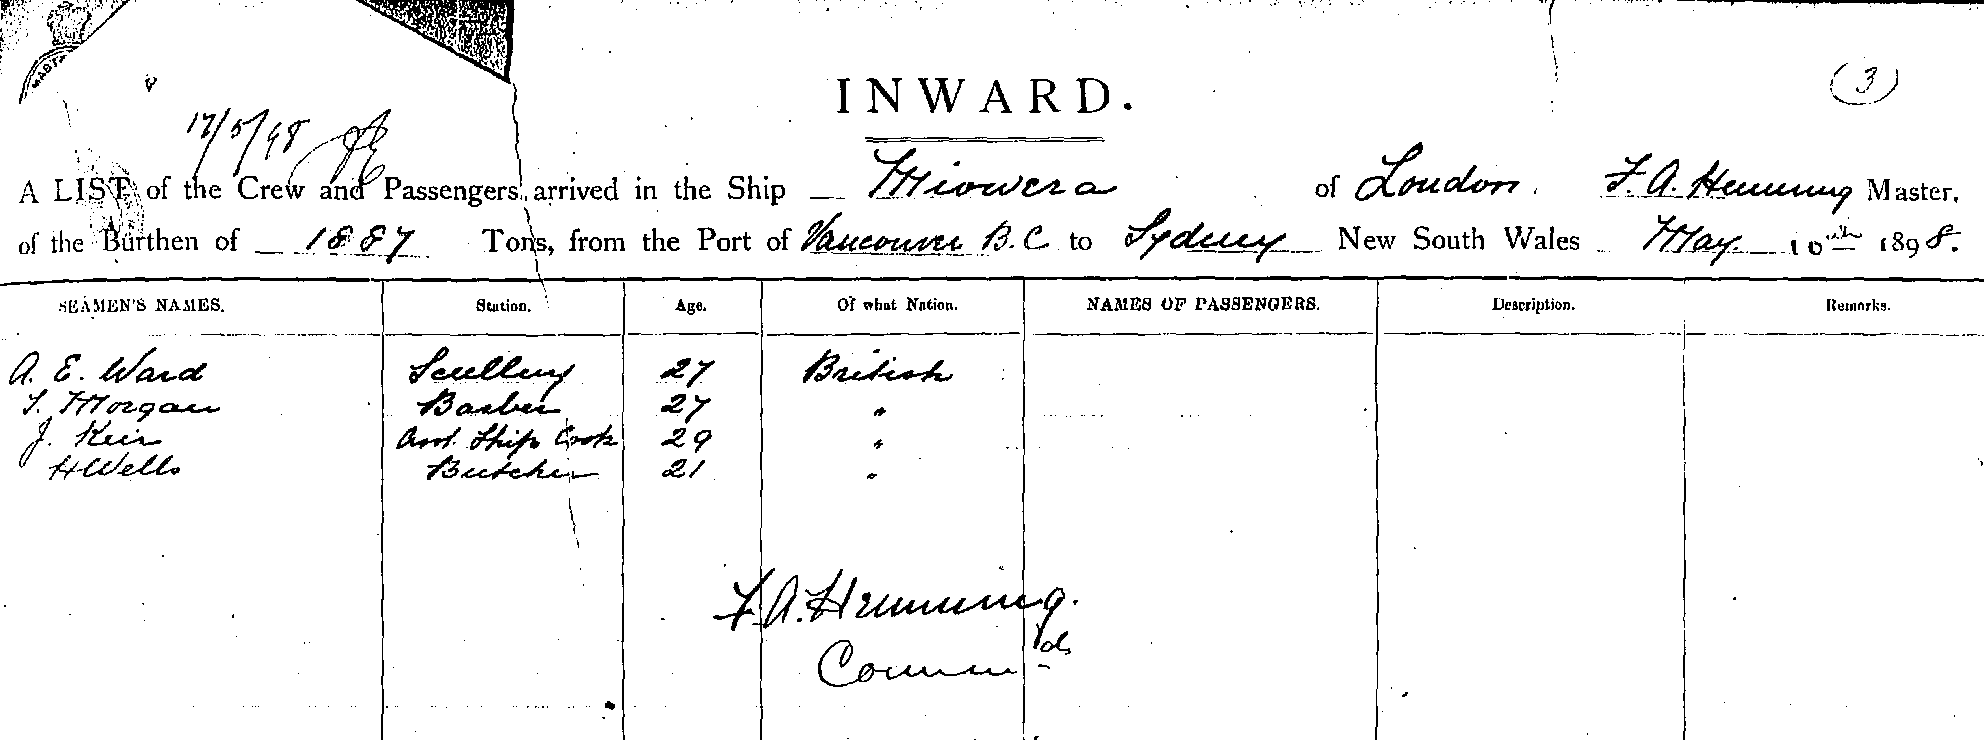 (3)
INWARD.
17/5/98
A LIST of the Crew and Passengers arrived in the Ship Miowera of London. F. A. Hemming Master,
of the Burthen of 1887 Tons, from the Port of Vancouver B.C to Sydney New South Wales May 10th 1898.
SEAMEN'S NAMES. Station. Age. Of what Nation. NAMES OF PASSENGERS. Description. Remarks.
A. E. Ward Scullery 27 British
Morgan Barber 27 "
J. Keir Asst. Ship Cook 29 "
H Wells Butcher 21 "
F. A. Hemming.